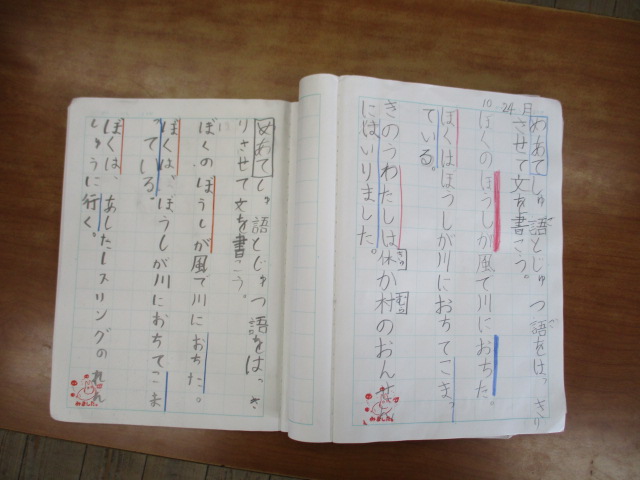 10 24 月
めあて しゅ語とじゅつ語をはっきり
させて文を書こう。
ぼくのぼうしが風で川におちた。
ぼくはぼうしが川におちてこまっ
ている。
きのうわたしは休か村のおんせん
にはいりました。
めあて しゅ語とじゅつ語をはっき
りさせて文を書こう。
ぼくのぼうしが風で川におちた。
ぼくは、ぼうしが川におちてこま
っている。
ぼくは、あしたレスリングのれん
しゅうに行く。
みました